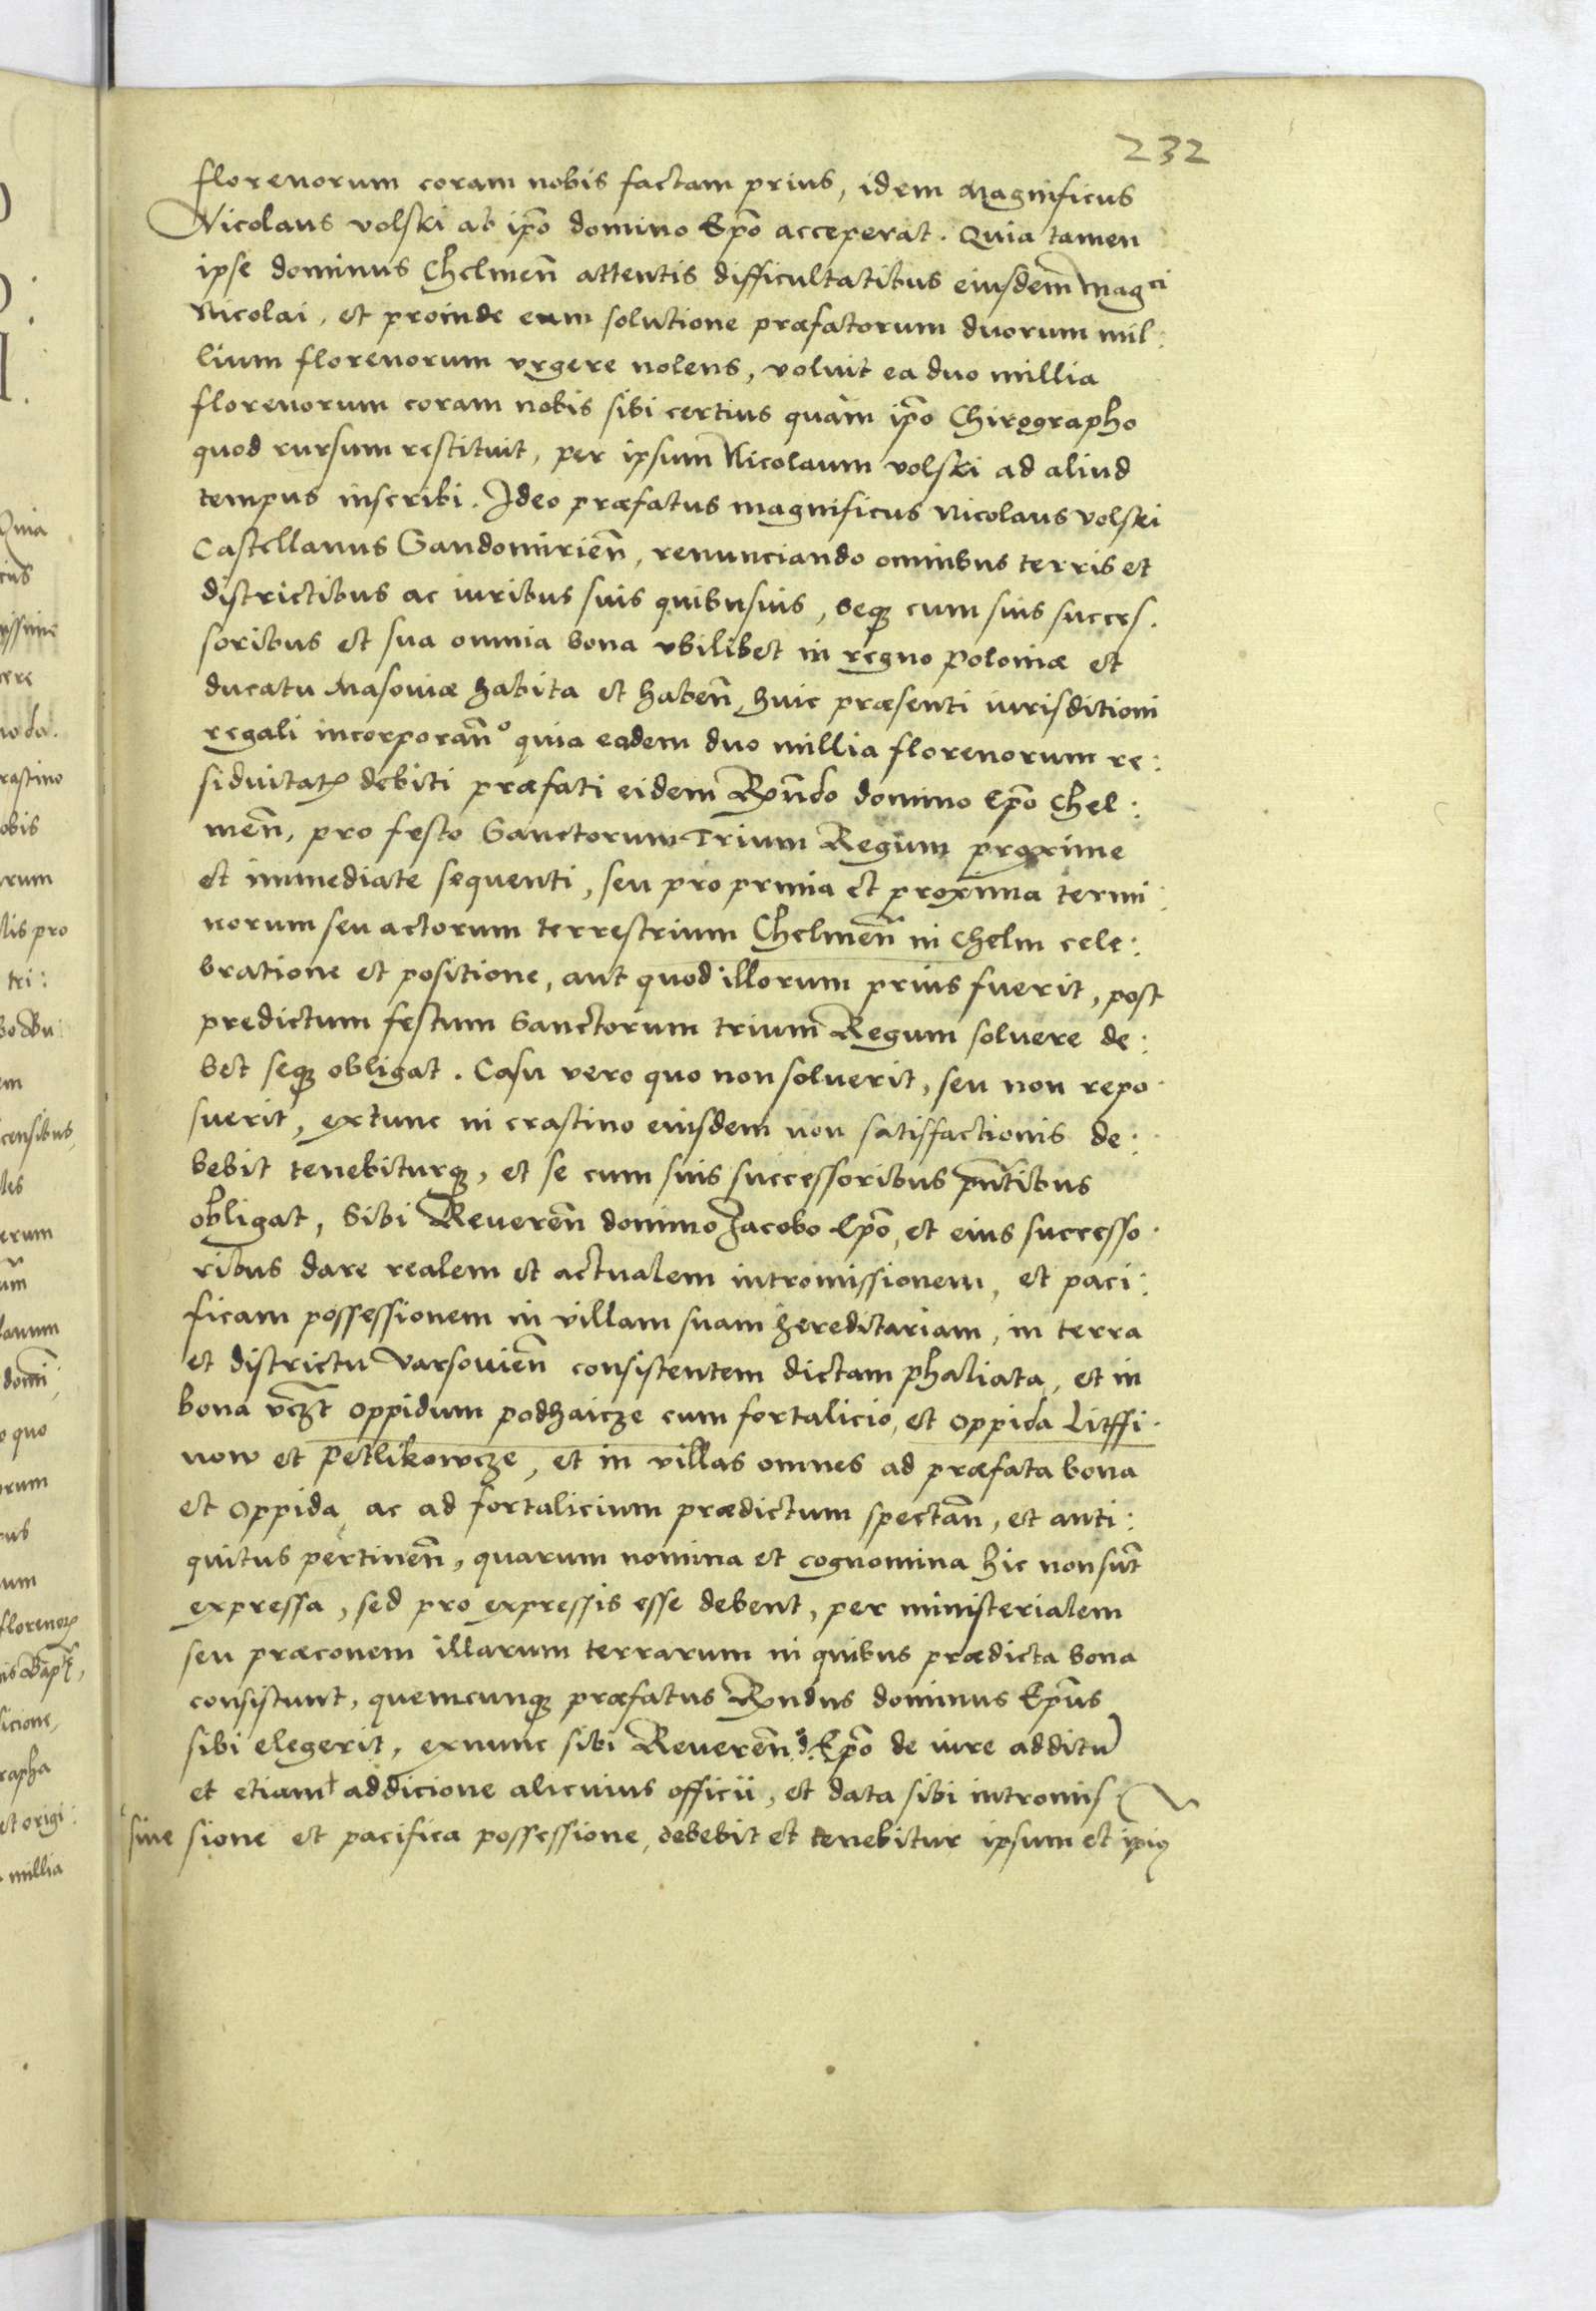 232
florenorum coram nobis factam prius, idem Magnificus
Nicolaus volski ab ip̃o domino Ep̃o acceperat. Quia tamen
ipse dominus Chelmeñ attentis difficultatibus eiusdem mag^ci
Nicolai, et proinde eum solutione præfatorum duorum mil:
lium florenorum vrgere nolens, voluit ea duo millia
florenorum coram nobis sibi certius quàm ip̃o Chirographo
quod rursum restituit, per ipsum Nicolaum volski ad aliud
tempus inscribi. Ideo præfatus magnificus Nicolaus volski
Castellanus Sandomirieñ, renunciando omnibus terris et
districtibus ac iuribus suis quibusuis, seq; cum suis succes.
soribus et sua omnia bona vbilibet in regno Poloniæ et
ducatu Masoviæ habita et habeñ, huic præsenti iurisditioni
regali incorporañ° quia eadem duo millia florenorum re:
siduitatꝭ debiti præfati eidem Rñdo domino Ep̃o Chel:
meñ, pro festo Sanctorum Trium Regum proxime
et immediate sequenti, seu pro prima et proxima termi:
norum seu actorum terrestrium Chelmeñ in Chelm cele:
bratione et positione, aut quod illorum prius fuerit, post
predictum festum Sanctorum trium Regum soluere de:
bet seq; obligat. Casu vero quo non soluerit, seu non repo.
suerit, extunc in crastino eiusdem non satisfactionis de:
bebit tenebiturq;, et se cum suis successoribus pñtibus
obligat, Sibi Reuereñ domino Jacobo Ep̃o, et eius successo.
ribus dare realem et actualem intromissionem, et paci:
ficam possessionem in villam suam hereditariam, in terra
et districtu varsovieñ consistentem dictam phaliata, et in
bona vcz̃t oppidum podhaicze cum fortalicio, et oppida Litffi.
now et Petlikowcze, et in villas omnes ad præfata bona
et oppida ac ad fortalicium prædictum spectañ, et anti:
quitus pertineñ, quarum nomina et cognomina hic non sũt
expressa, sed pro expressis esse debent, per ministerialem
seu præconem illarum terrarum in quibus prædicta bona
consistunt, quemcunq; præfatus Rñdus dominus Ep̃us
sibi elegerit, exnunc sibi Reuereñ d. Ep̃o de iure additũ
et etiam† addicione alicuius officii, et data sibi intromis
sine sione et pacifica possessione, debebit et tenebitur ipsum et ip̃iꝰ